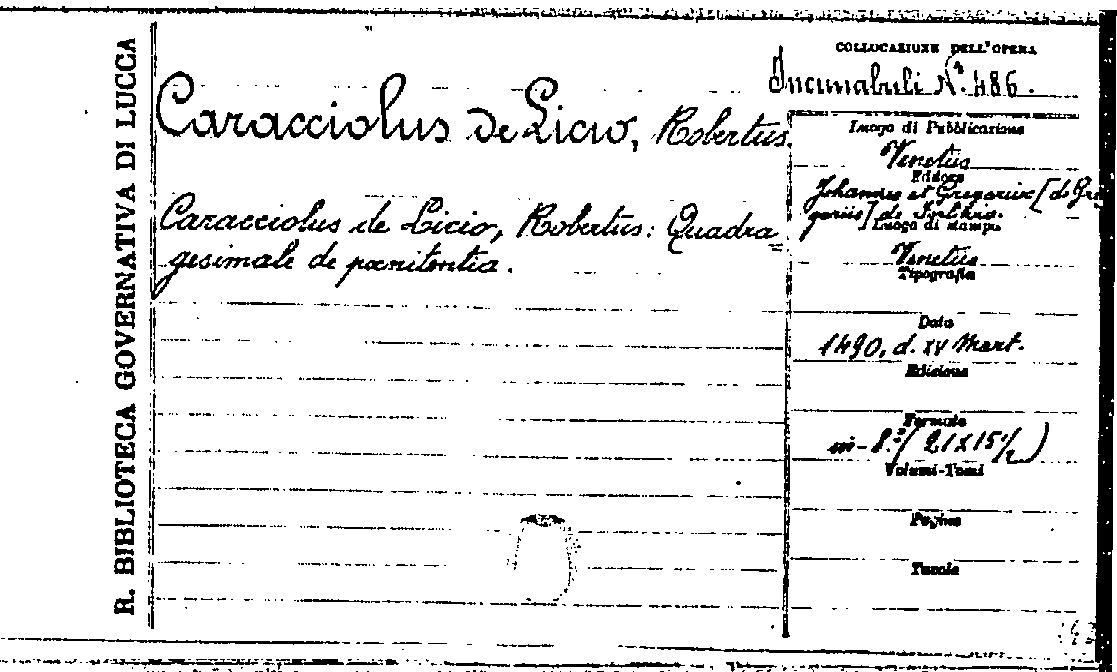 R. BIBLIOTECA GOVERNATIVA DI LUCCA
COLLOCAZIONE DELL'OPERA
Incunabuli N.º 486.
Caracciolus de Licio, Robertus.
Caracciolus de Licio, Robertus: Quadra=
gesimale de pœnitentia.
Luogo di Pubblicazione
Venetiis
Editore
Johannes et Gregorius [de Gre
goriis] de
Luogo di stampa
Venetiis
Tipografia
Data
1490, d. XV Mart.
Edizione
Formato
in-8.º (21x15½)
Volumi-Tomi
Pagine
Tavole